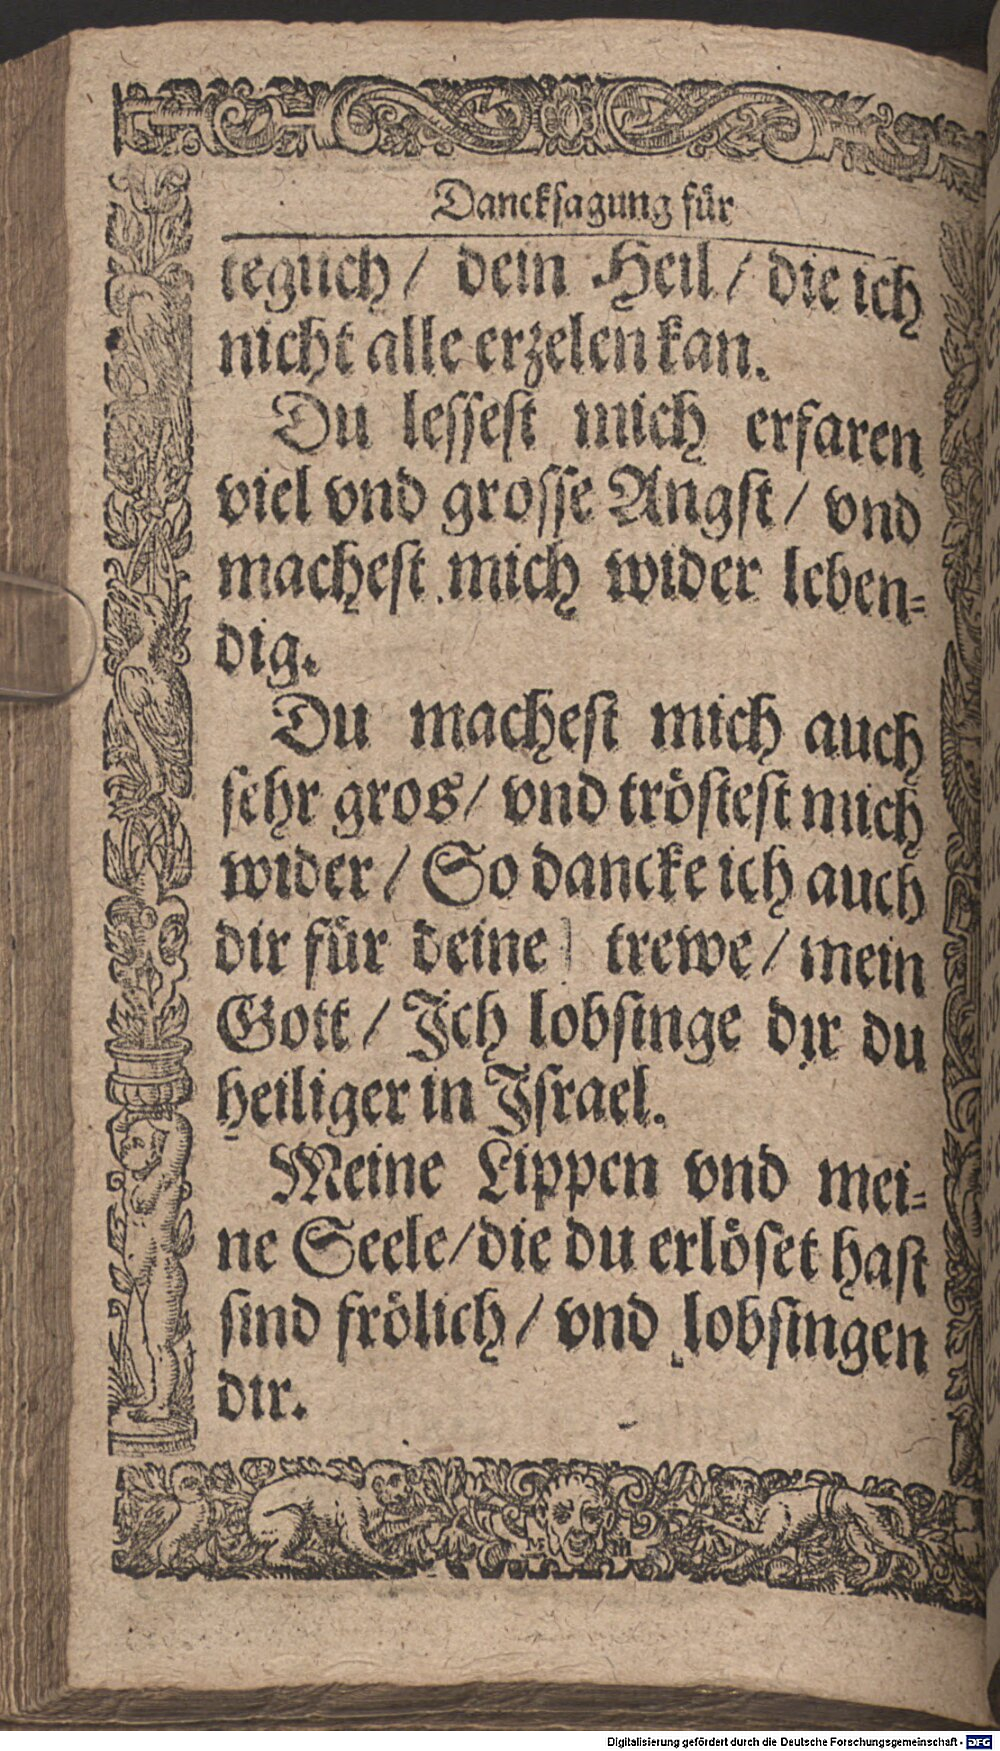 Dancksagung für
teglich / dein Heil / die ich
nicht alle erzelen kan.
Du lessest mich erfaren
viel vnd grosse Angst / vnd
machest mich wider leben-
dig.
Du machest mich auch
sehr gros / vnd tröstest mich
wider / So dancke ich auch
dir für deine trewe / mein
Gott / Jch lobsinge dir du
heiliger in Jsrael.
Meine Lippen vnd mei-
ne Seele / die du erlöset hast
sind frölich / vnd lobsingen
dir.
Digitalisierung gefördert durch die Deutsche Forschungsgemeinschaft - DFG